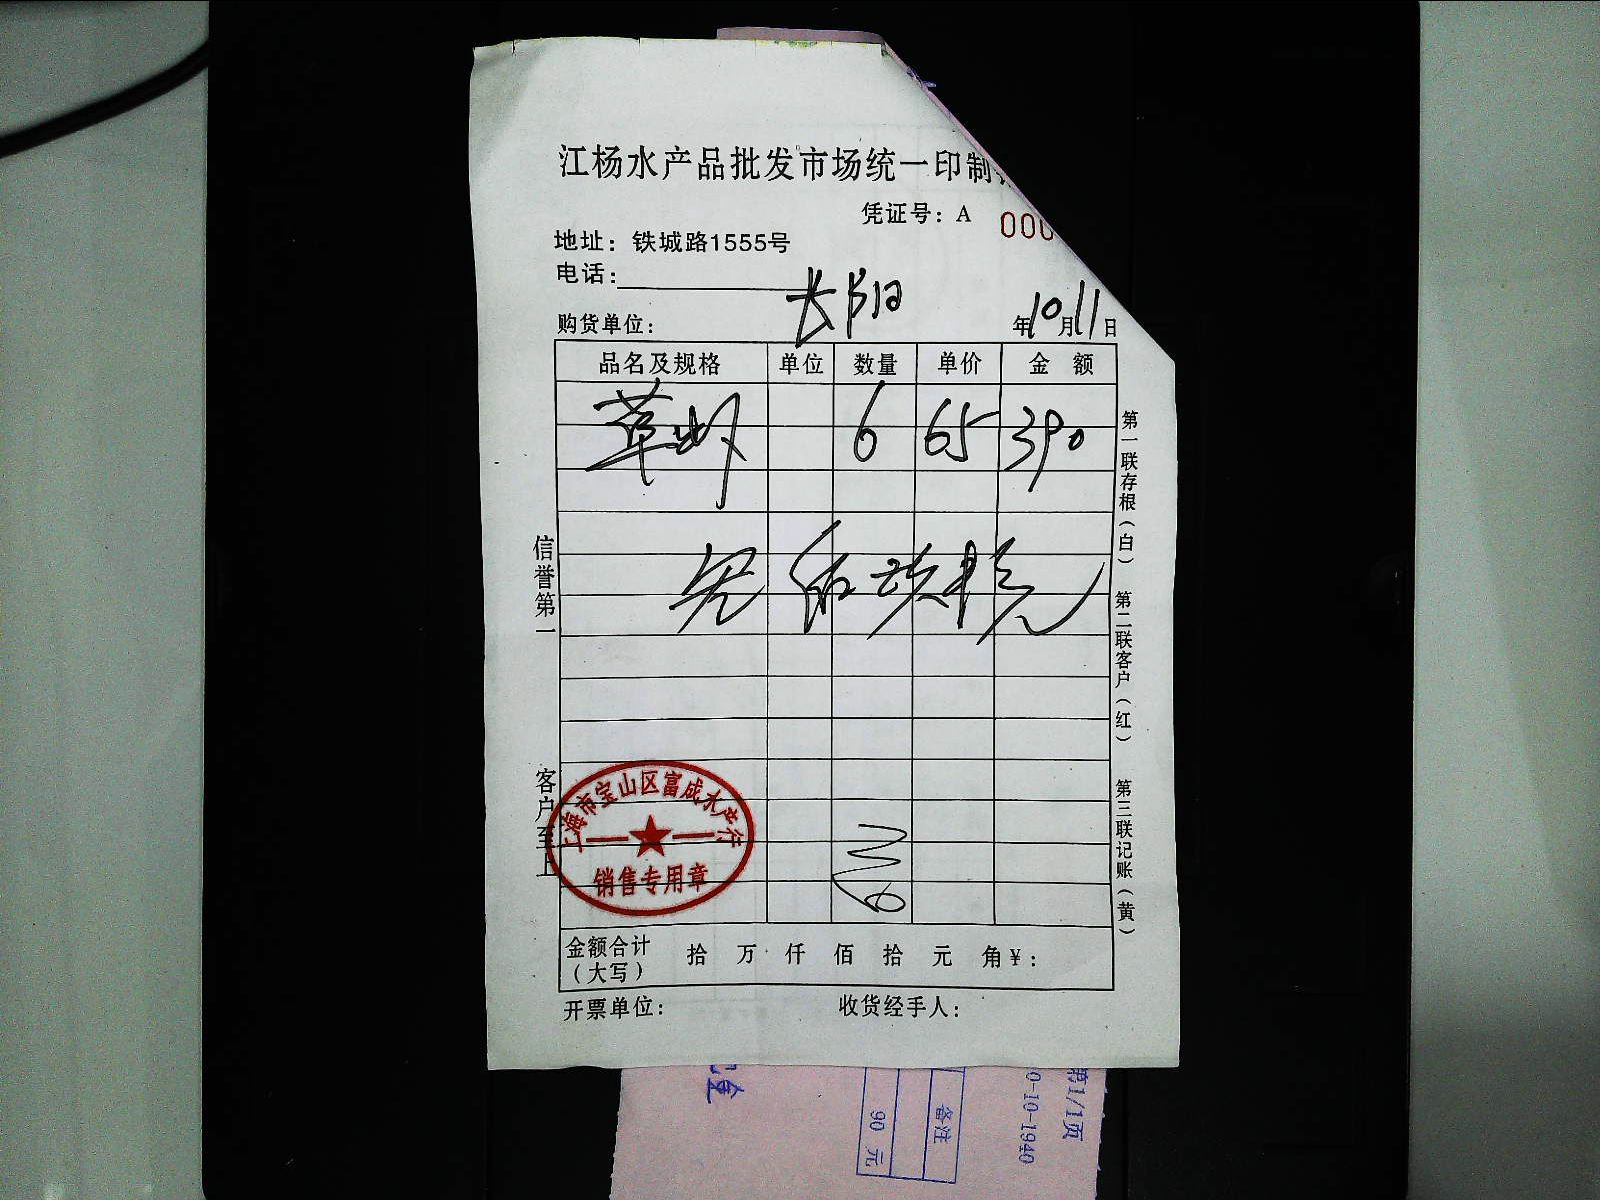 江杨水产品批发市场统一印制
凭证号：A 000
地址：铁城路1555号
电话：
长阳
购货单位： 年10月11日
品名及规格 单位 数量 单价 金 额
草虾 6 65 390
信誉第一
客户至上
第一联存根（白） 第二联客户（红） 第三联记账（黄）
上海市宝山区富成水产行
销售专用章
金额合计（大写） 拾 万 仟 佰 拾 元 角 ¥：
开票单位： 收货经手人：
第1/1页
0-10-1940
备注
90 元